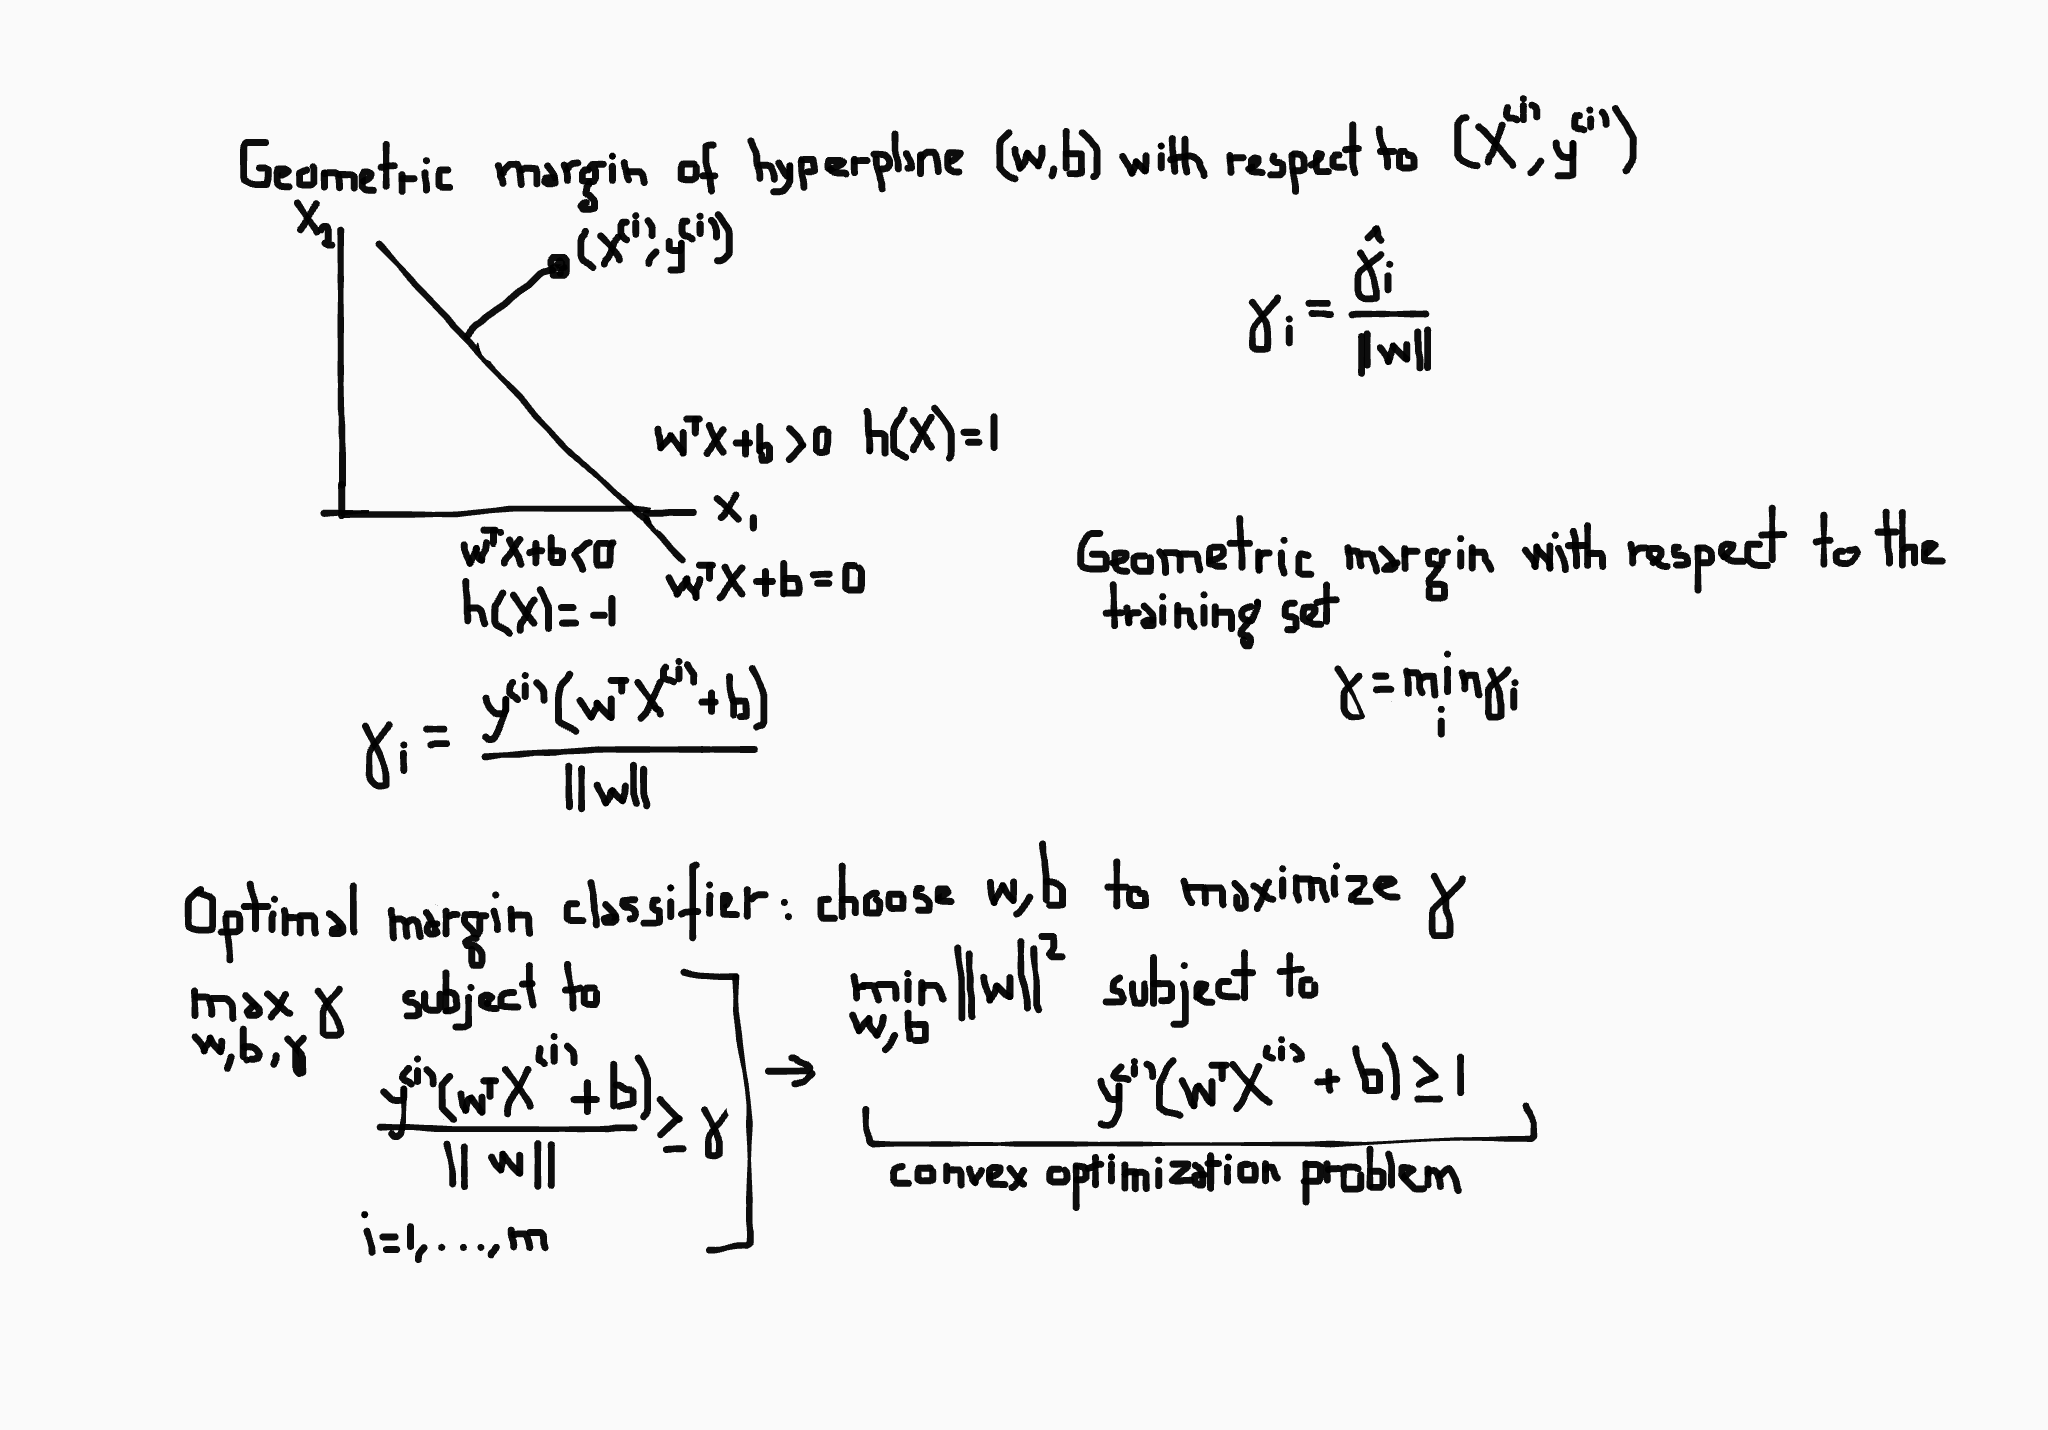 Geometric margin of hyperplane (w,b) with respect to (X⁽ⁱ⁾, y⁽ⁱ⁾)
x₂
(X⁽ⁱ⁾, y⁽ⁱ⁾)
γ_i = γ̂_i / ||w||
wᵀX+b>0 h(X)=1
x₁
wᵀX+b<0
h(X)=-1
wᵀX+b=0
Geometric margin with respect to the
training set
γ = min_i γ_i
γ_i = y⁽ⁱ⁾(wᵀX⁽ⁱ⁾+b) / ||w||
Optimal margin classifier: choose w,b to maximize γ
max_{w,b,γ} γ subject to
y⁽ⁱ⁾(wᵀX⁽ⁱ⁾+b) / ||w|| ≥ γ
i=1,...,m
→
min_{w,b} ||w||² subject to
y⁽ⁱ⁾(wᵀX⁽ⁱ⁾+b) ≥ 1
convex optimization problem